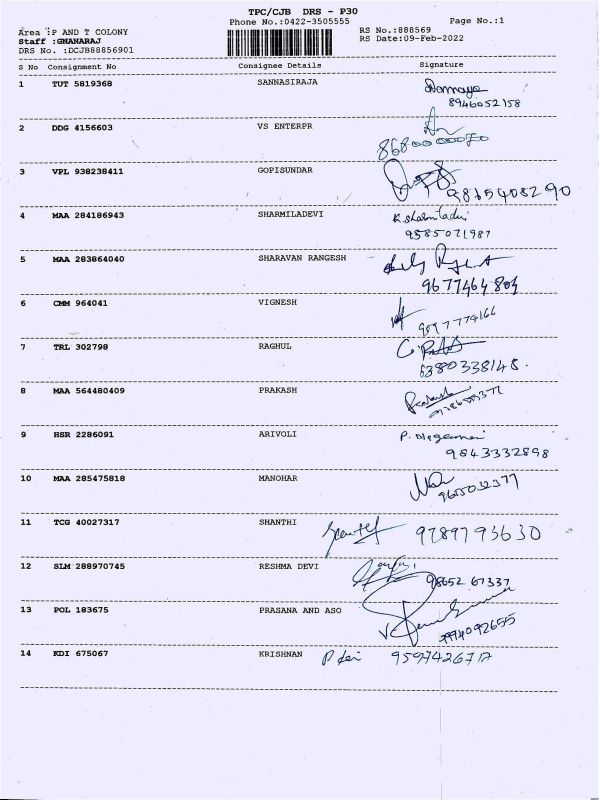 TPC/CJB DRS - P30
Phone No.:0422-3505555 Page No.:1
Area :P AND T COLONY RS No.:888569
Staff :GNANARAJ RS Date:09-Feb-2022
DRS No. :DCJB88856901
S No Consignment No Consignee Details Signature
1 TUT 5819368 SANNASIRAJA
8946052158
2 DDG 4156603 VS ENTERPR
3 VPL 938238411 GOPISUNDAR
4 MAA 284186943 SHARMILADEVI K.Sharmiladevi
9585071987
5 MAA 283864040 SHARAVAN RANGESH
9677464804
6 CMM 964041 VIGNESH
7 TRL 302798 RAGHUL
6380338148.
8 MAA 564480409 PRAKASH
9 HSR 2286091 ARIVOLI
9843332898
10 MAA 285475818 MANOHAR
9655032377
11 TCG 40027317 SHANTHI 9789793630
12 SLM 288970745 RESHMA DEVI
98652 67337
13 POL 183675 PRASANA AND ASO
14 KDI 675067 KRISHNAN